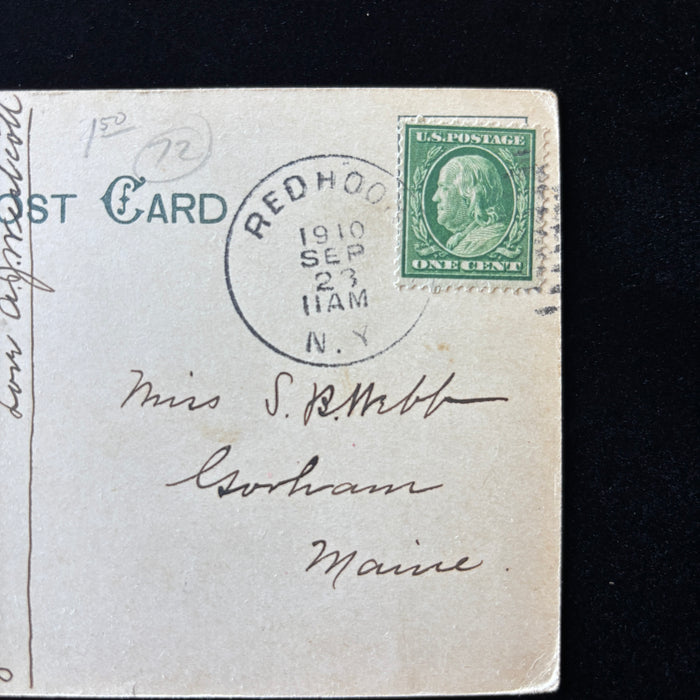 1.50
72
POST CARD
RED HOOK
1910
SEP
23
11AM
N.Y
U.S. POSTAGE
ONE CENT
Miss S. B. Webb
Gorham
Maine.